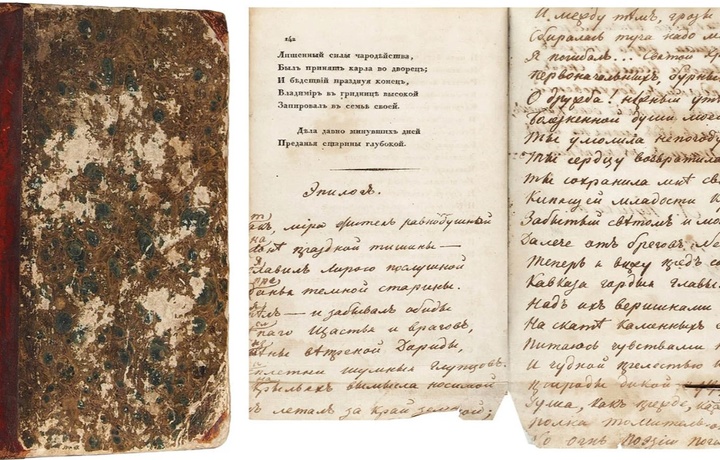 142
Лишенный силы чародѣйства,
Былъ принятъ карла во дворецъ;
И бѣдствій празднуя конецъ,
Владиміръ въ гридницѣ высокой
Запировалъ въ семьѣ своей.
Дѣла давно минувшихъ дней
Преданья старины глубокой.
Эпилогъ.
Такъ, міра житель равнодушный
На лонѣ праздной тишины —
Я славилъ лирою послушной
Преданья темной старины.
пѣлъ — и забывалъ обиды
Слѣпаго щастья и враговъ,
Измѣны вѣтреной Дориды,
сплетни шумныя глупцовъ.
На крыльяхъ вымысла носимой
леталъ за край земной;
И между тѣмъ, грозы
Сбиралась туча надо м
Я погибалъ... Святой
первоначальныхъ бурныхъ
О дружба! нѣжный ут
болѣзненной души мое
Ты умолила непогоду
Ты сердцу возвратила
Ты сохранила мнѣ св
Кипящей младости
Забытый свѣтомъ и м
Далече отъ бреговъ Н
Теперь я вижу предъ с
Кавказа гордыя главы
Надъ ихъ вершинами
На скатѣ каменныхъ с
Питаюсь чувствами
И чудной прелестью
природы дикой
душа, какъ прежде,
полна томительн
Но огнь поэзіи пога